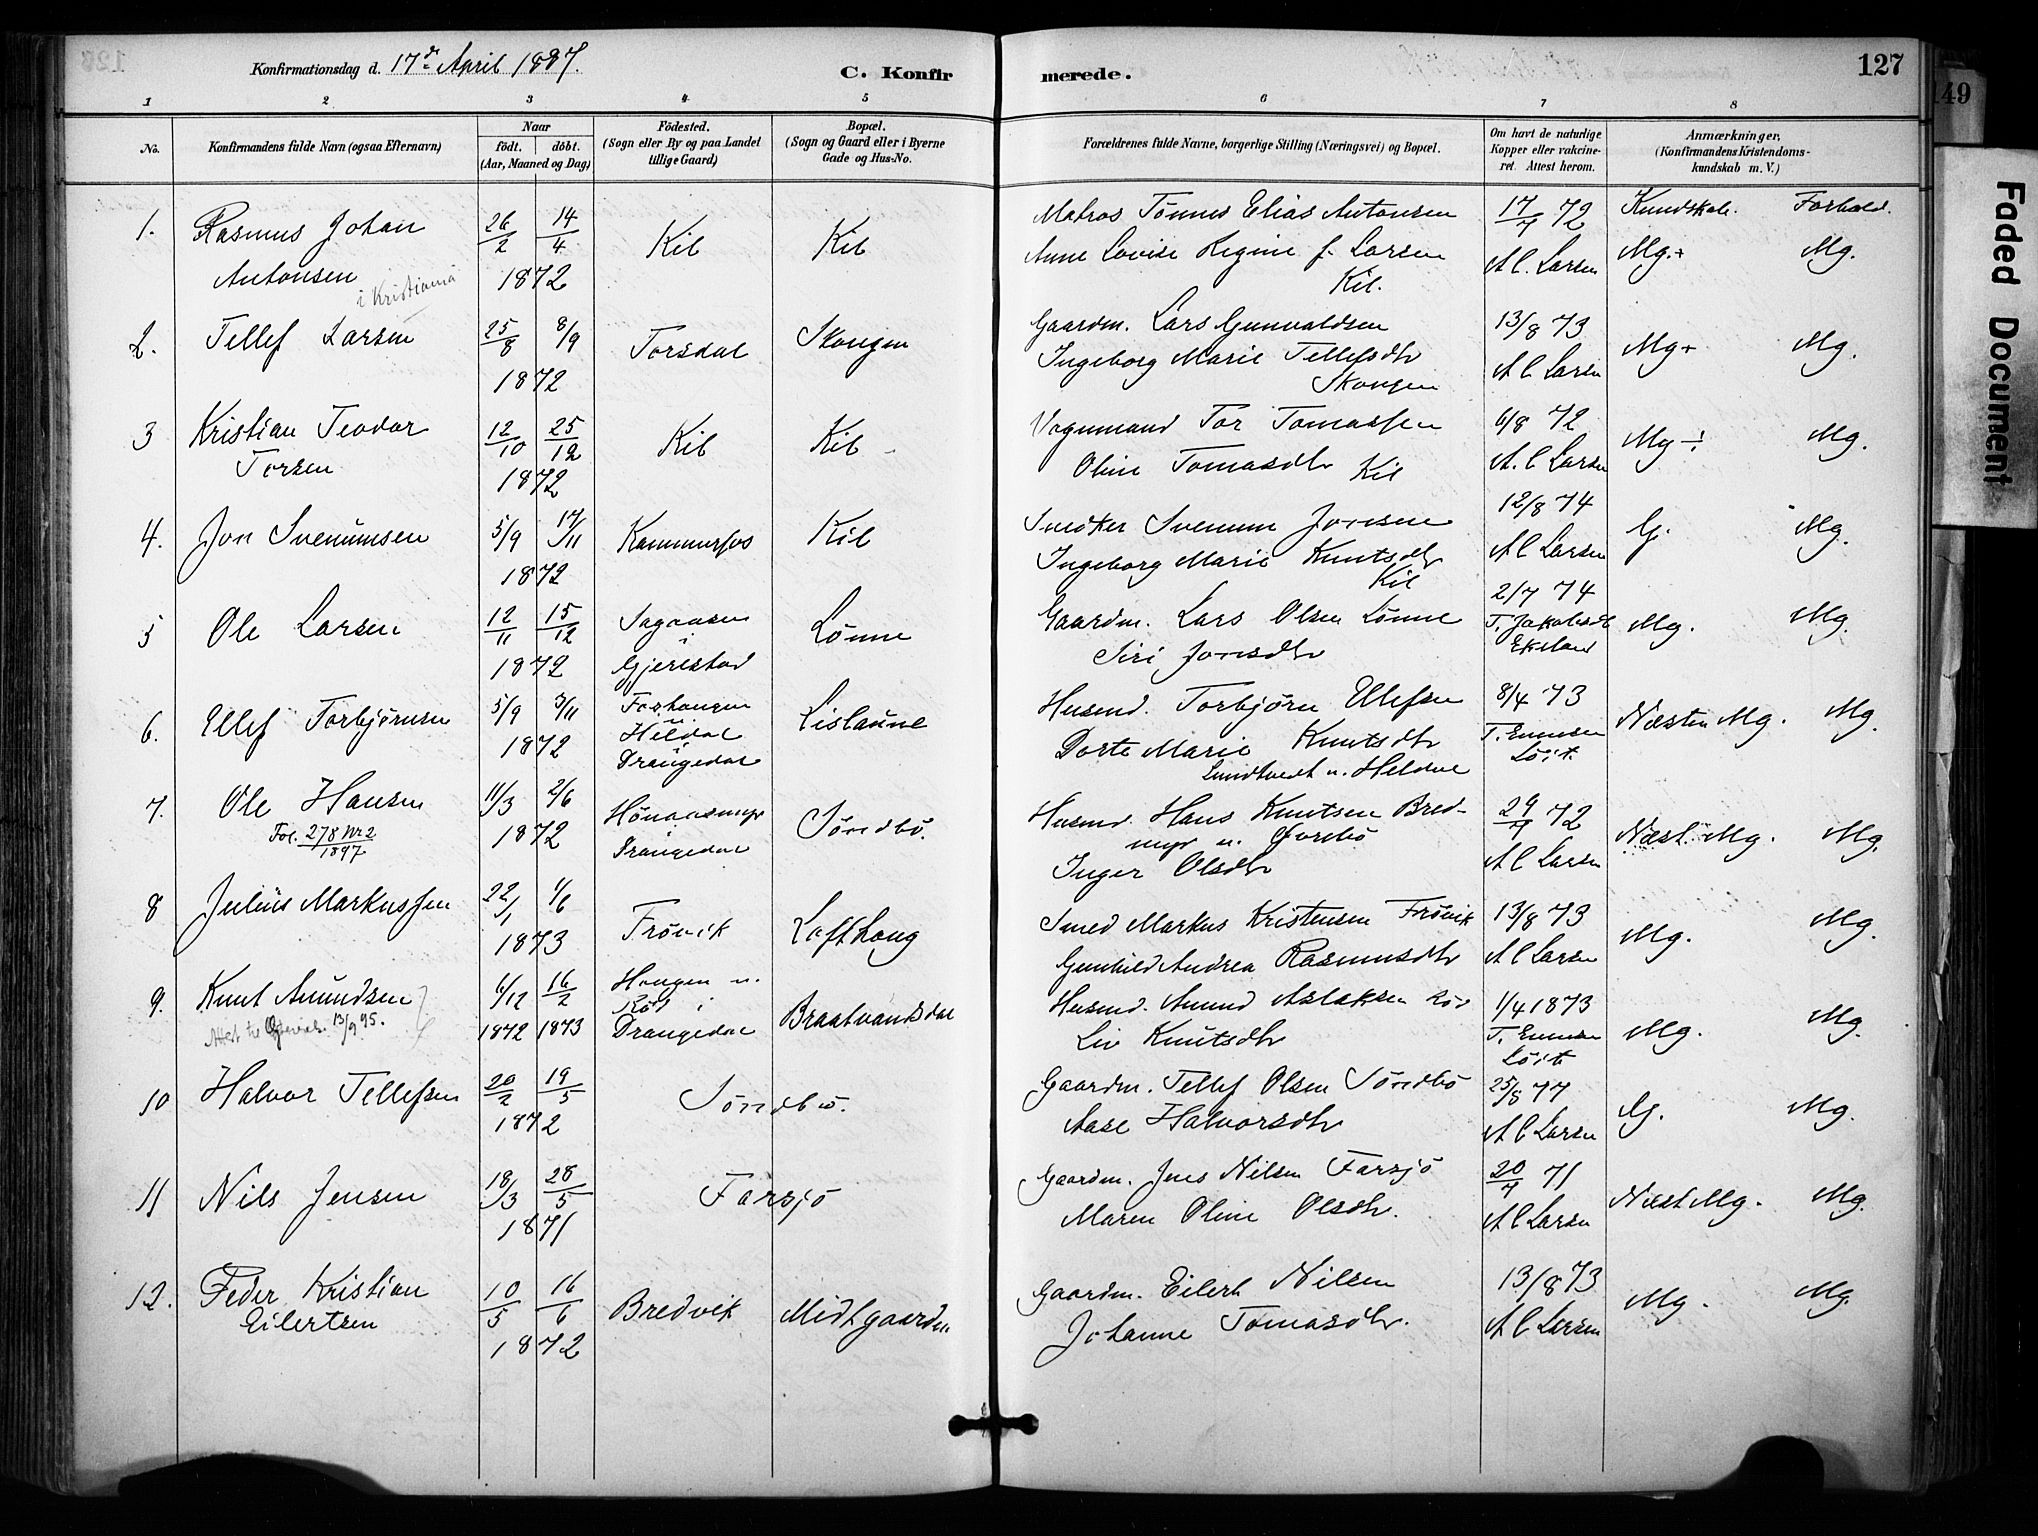 Konfirmationsdag d. 17de April 1887.
C. Konfirmerede.
127
149
Faded Document
1 2 3 4 5 6 7 8
No.
Konfirmandens fulde Navn (ogsaa Efternavn)
Naar
født. døbt.
(Aar, Maaned og Dag)
Fødested.
(Sogn eller By og paa Landet
tillige Gaard)
Bopæl.
(Sogn og Gaard eller i Byerne
Gade og Hus-No.
Forældrenes fulde Navne, borgerlige Stilling (Næringsvei) og Bopæl.
Om havt de naturlige
Kopper eller vakcine-
ret. Attest herom.
Anmærkninger,
(Konfirmandens Kristendoms-
kundskab m. V.)
Kundskab. Forhold.
1. Rasmus Johan
Antonsen
i Kristiania
26/2 14/4
1872
Kil
Kil
Matros Tønnes Elias Antonsen
Anne Lovise Regine f. Larsen
Kil.
17/7 72
A C. Larsen
Mg.+ Mg.
2. Tellef Larsen
25/8 8/9
1872
Torsdal
Skougen
Gaardm. Lars Gunvaldsen
Ingeborg Marie Tellefsdtr
Skougen
13/8 73
A C Larsen
Mg+ Mg.
3 Kristian Teodor
Torsen
12/10 25/12
1872
Kil
Kil
Vognmand Tor Tomassen
Oline Tomasdtr Kil
6/8 72
A. C Larsen
Mg ÷ Mg.
4. Jon Svenumsen
5/9 17/11
1872
Kammerfos
Kil
Snedker Svenum Jonsen
Ingeborg Marie Knutsdtr
Kil
12/8 74
A C Larsen
G. Mg.
5 Ole Larsen
12/11 15/12
1872
i
Gjerestad
Lønne
Gaardm. Lars Olsen Lønne
Siri Jonsdtr
2/7 74
T. Jakobsdt
Ekeland
Mg. Mg.
6. Ellef Torbjørnsen
5/9 3/11
1872
u
Heldal
Drangedal
Lislaune
Husmd. Torbjørn Ellefsen
Dorte Marie Knutsdtr
u. Heldal
8/4 73
Løit.
Næsten Mg. Mg.
7. Ole Hansen
Fol. 278 Nr 2
1897
11/3 2/6
1872
Hønaasmyr
Drangedal
Søndbø.
Husmd. Hans Knutsen Bred-
myr u.
Inger Olsdtr
29/7 72
A C Larsen
Næst. Mg. Mg.
8 Julius Markussen
22/1 1/6
1873
Frøvik
Lofthaug
Smed Markus Kristensen Frøvik
Gunhild Andrea Rasmusdtr
13/8 73
A C Larsen
Mg. Mg.
9. Knut Amundsen
Attest til 13/9 95.
6/12 16/2
1872 1873
Haugen u.
i
Drangedal
Braatvandsdal
Husmd. Amund Aslaksen
Liv Knutsdtr
1/4 1873
Løit
Mg. Mg.
10 Halvor Tellefsen
20/2 19/5
1872
Søndbø.
Gaardm. Tellef Olsen Søndbø
Aase Halvorsdtr
25/8 77
A C Larsen
G. Mg.
11 Nils Jensen
18/3 28/5
1871
Farsjø
Gaardm. Jens Nilsen Farsjø
Maren Oline Olsdtr.
20/7 71
A C Larsen
Næst Mg. Mg.
12. Peder Kristian
Eilertsen
10/5 16/6
1872
Bredvik
Midtgaarden
Gaardm. Eilert Nilsen
Johanne Tomasdtr.
13/8 73
A C Larsen
Mg. Mg.